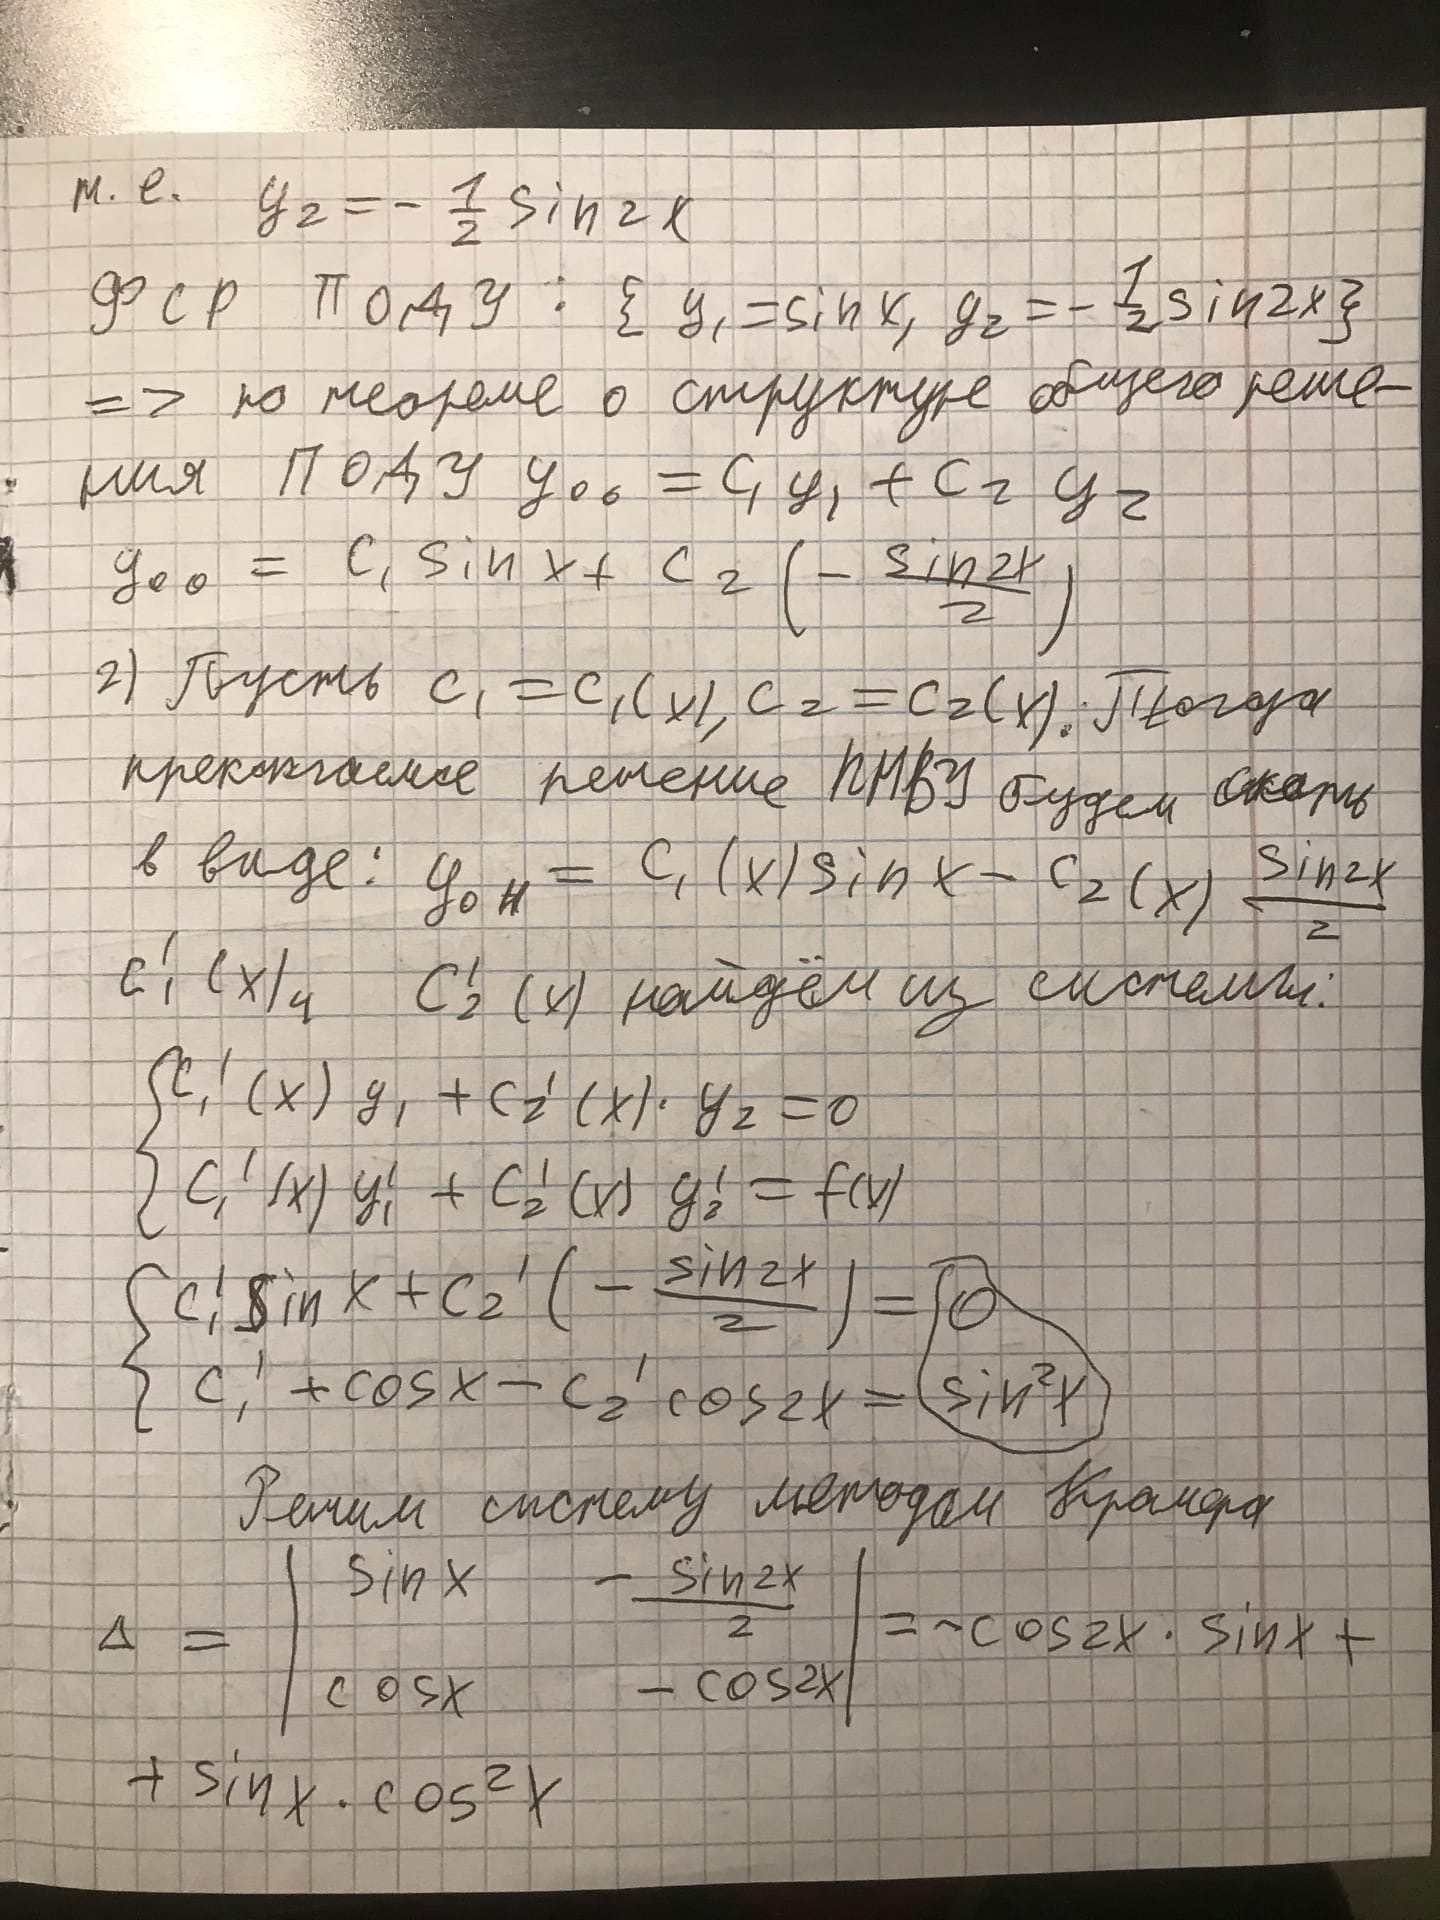 т. е. y₂ = - 1/2 sin2x
ФСР ПОДУ : { y₁ = sinx, y₂ = - 1/2 sin2x}
=> по теореме о структуре общего реше-
ния ПОДУ yоо = C₁ y₁ + C₂ y₂
yоо = C₁ sin x + C₂ (- sin2x/2)
2) Пусть C₁ = C₁(x), C₂ = C₂(x). Тогда
решение будем
в виде: yон = C₁(x) sin x - C₂(x) sin2x/2
C₁'(x), C₂'(x) найдём из системы:
{ C₁'(x) y₁ + C₂'(x) · y₂ = 0
C₁'(x) y₁' + C₂'(x) y₂' = f(x)
{ C₁' sin x + C₂' (- sin2x/2) = 0
C₁' + cosx - C₂' cos2x = sin²x
Решим систему методом Крамера
Δ = | sin x - sin2x/2 | = -cos2x · sinx +
| cosx - cos2x |
+ sinx · cos²x